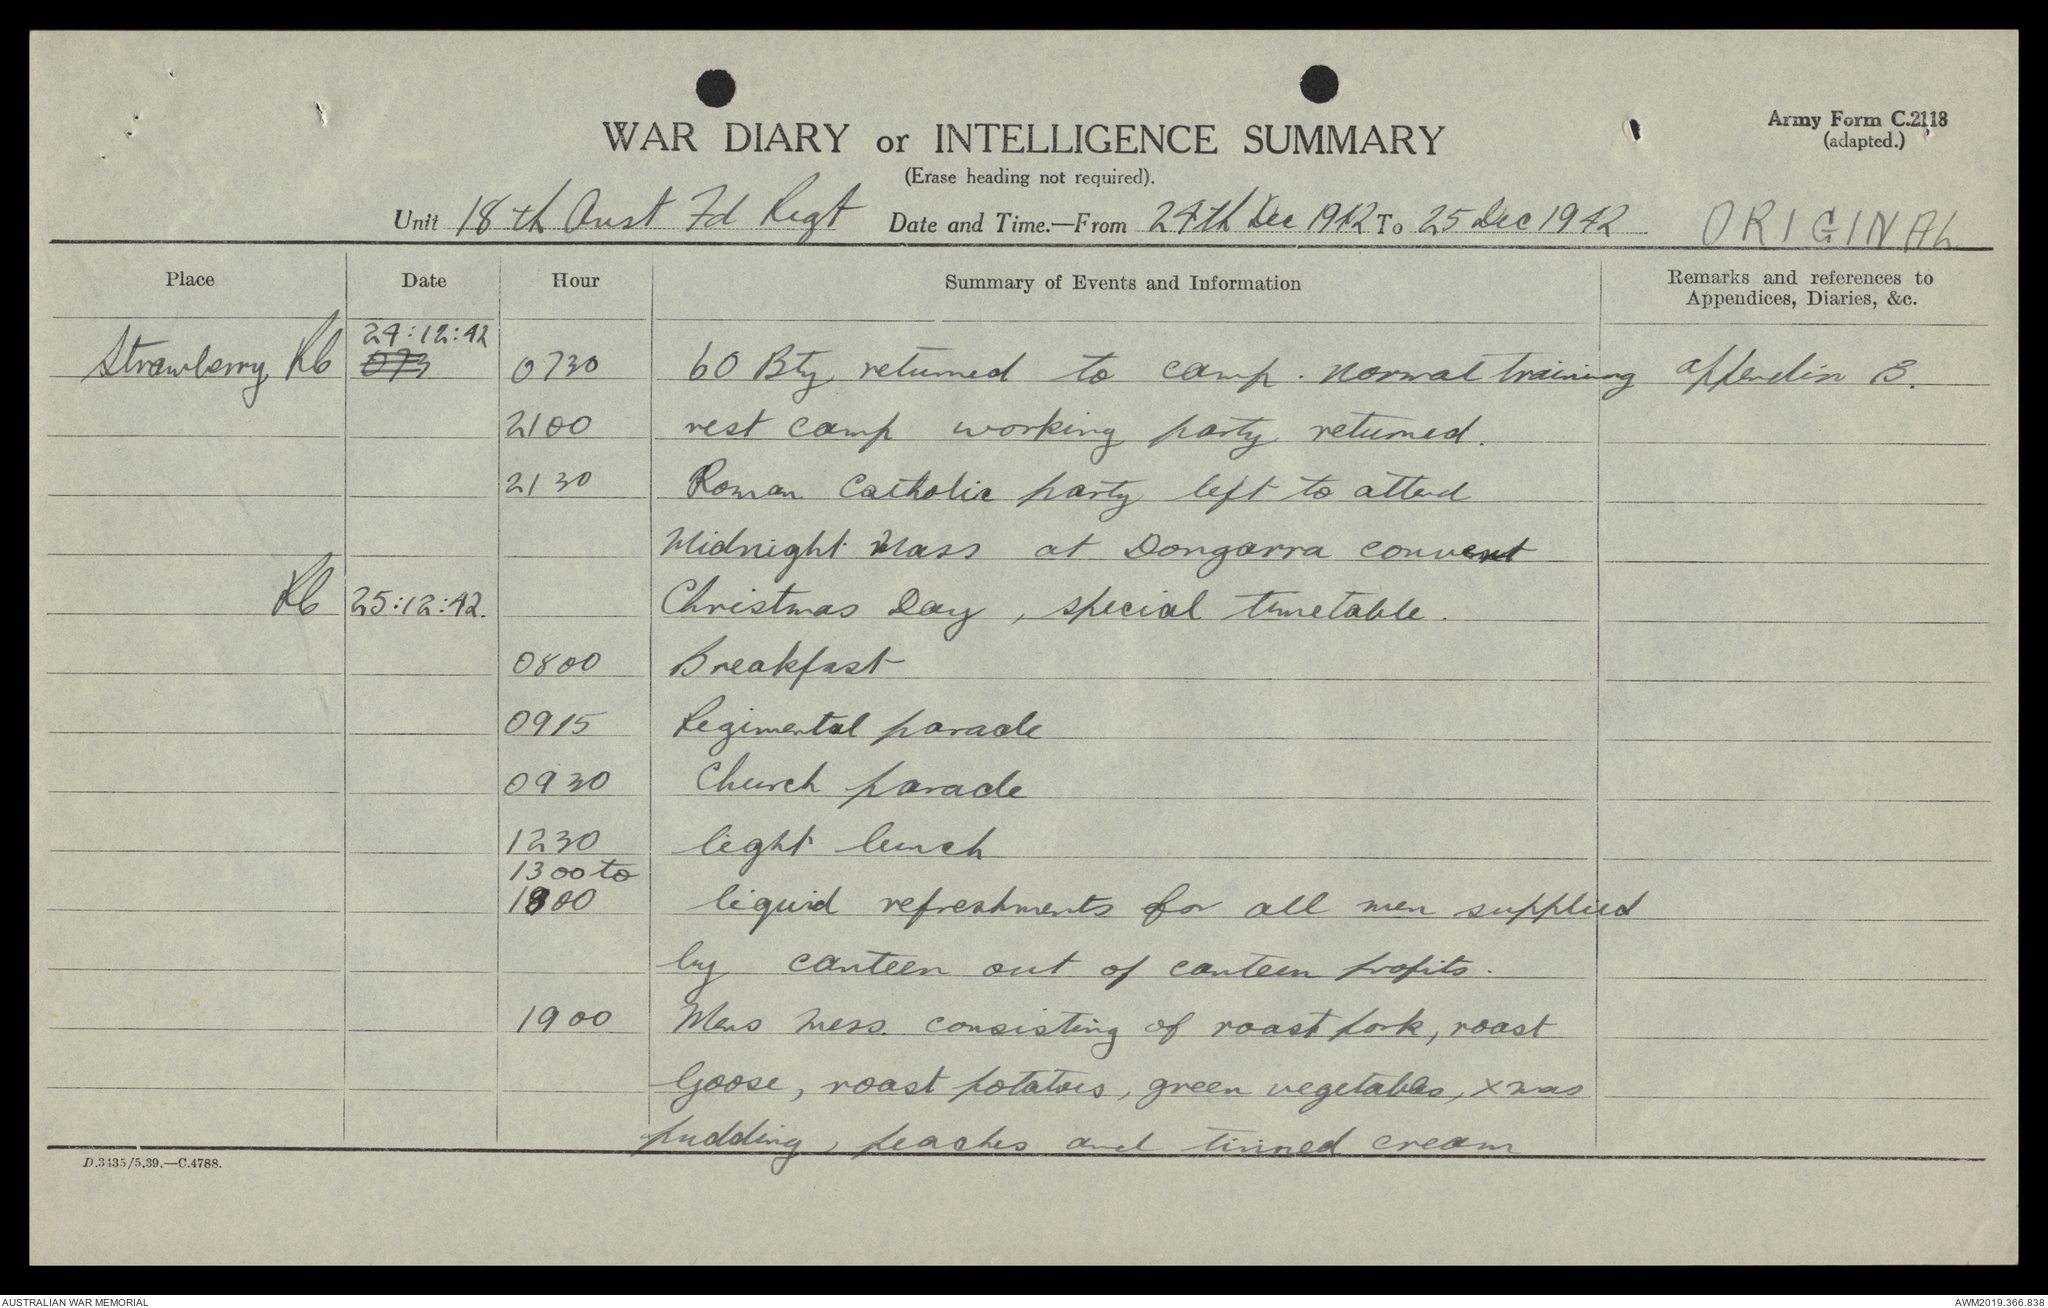 Army Form C.2118
(adapted.)
WAR DIARY or INTELLIGENCE SUMMARY
(Erase heading not required).
Unit 18th Aust Fd Regt Date and Time.—From 24th Dec 1942 To 25 Dec 1942 ORIGINAL
Place Date Hour Summary of Events and Information Remarks and references to
Appendices, Diaries, &c.
24:12:42
Strawberry Rb 073 0730 60 Bty returned to camp. normal training appendix B.
2100 rest camp working party returned.
2130 Roman Catholic party left to attend
Midnight Mass at Dongarra convent
Rb 25:12:42. Christmas Day, special timetable.
0800 Breakfast
0915 Regimental parade
0930 Church parade
1230 light lunch
1300 to
1800 liquid refreshments for all men supplied
by canteen out of canteen profits.
1900 Mens mess. consisting of roast pork, roast
Goose, roast potatoes, green vegetables, xmas
pudding, peaches and tinned cream
D.3435/5.39.—C.4788.
AUSTRALIAN WAR MEMORIAL AWM2019.366.838